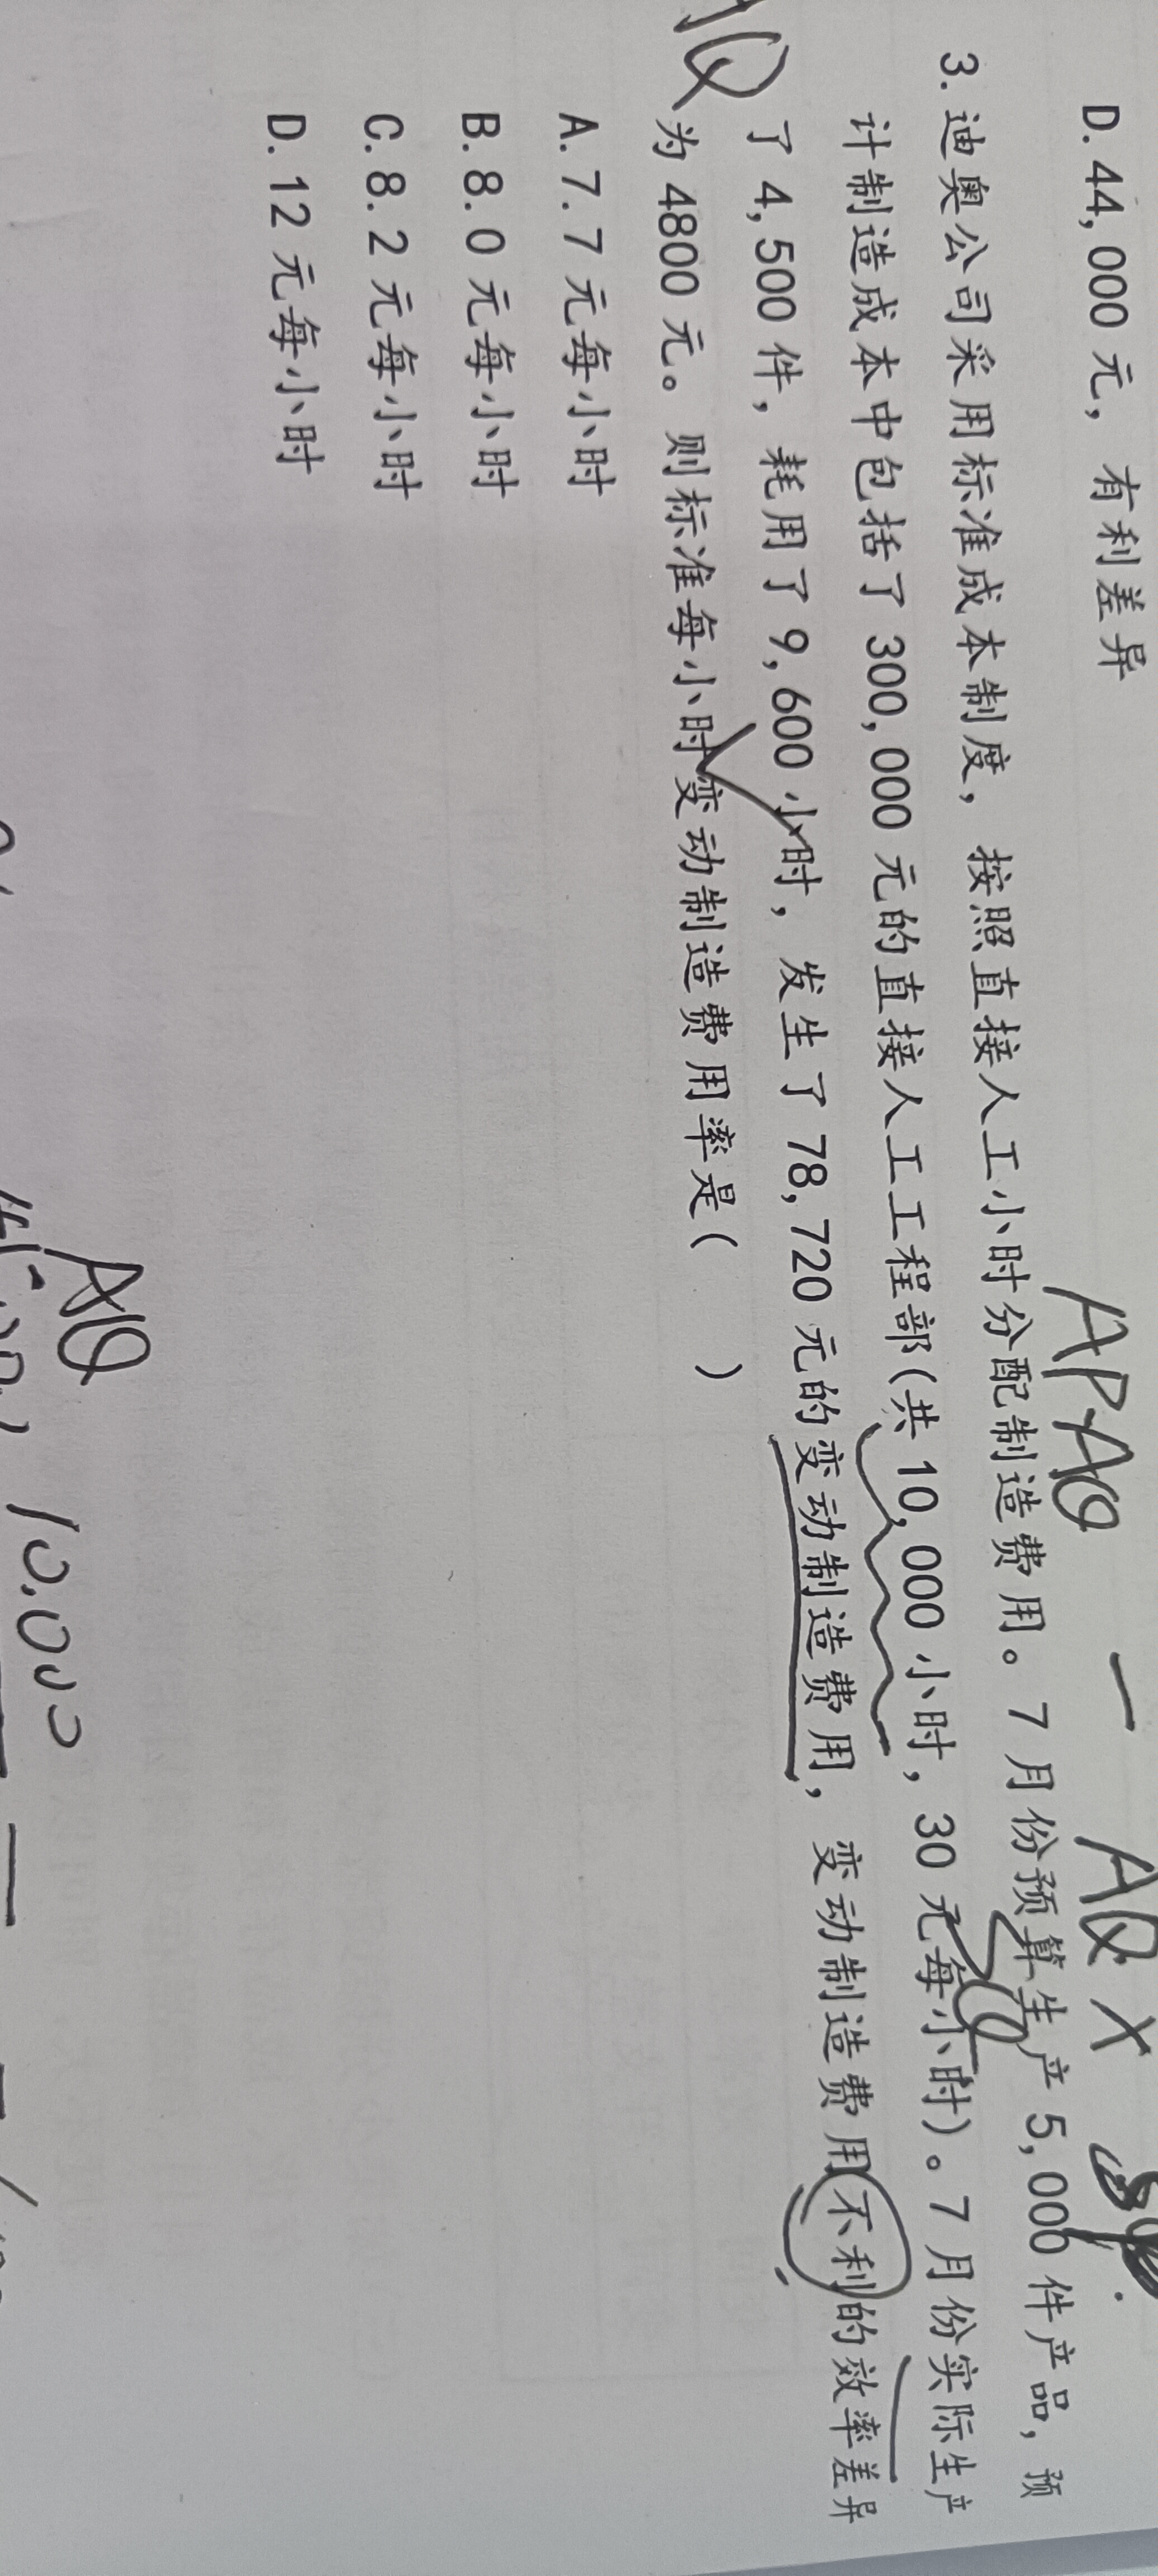 D. 44,000 元, 有利差异
APAQ — AQ X
3. 迪奥公司采用标准成本制度, 按照直接人工小时分配制造费用。7 月份预算生产 5,000 件产品, 预
计制造成本中包括了 300,000 元的直接人工工程部(共 10,000 小时, 30 元每小时)。7 月份实际生产
了 4,500 件, 耗用了 9,600 小时, 发生了 78,720 元的变动制造费用, 变动制造费用不利的效率差异
为 4800 元。则标准每小时变动制造费用率是( )
A. 7.7 元每小时
B. 8.0 元每小时
C. 8.2 元每小时
D. 12 元每小时
AQ
10.000